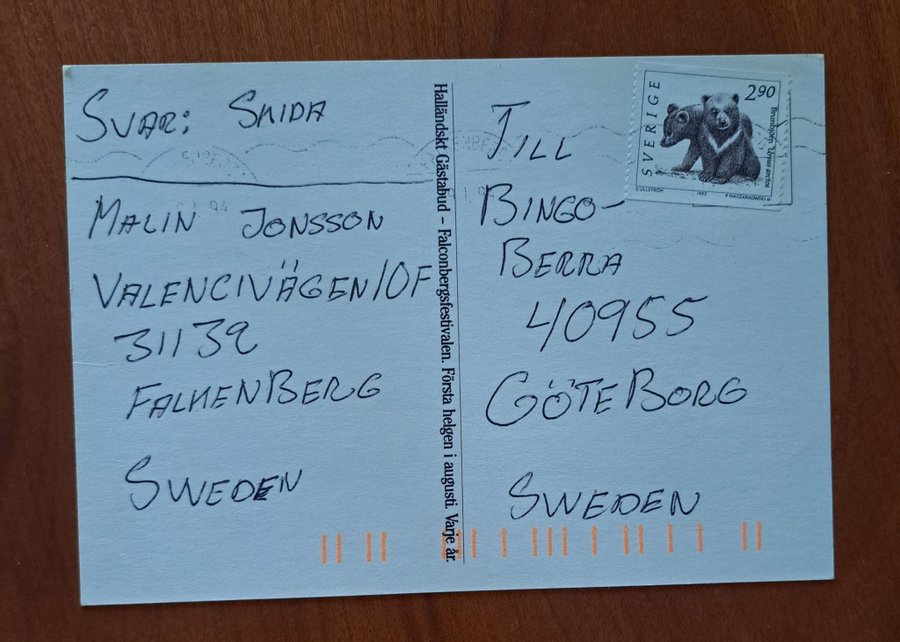 SVAR: SKIDA
MALIN JONSSON
VALENCIVÄGEN 10F
31139
FALKENBERG
SWEDEN
Halländskt Gästabud – Falconbergsfestivalen. Första helgen i augusti. Varje år.
TILL
BINGO-
BERRA
40955
GÖTEBORG
SWEDEN
SVERIGE
2.90
Brunbjörn Ursus arctos